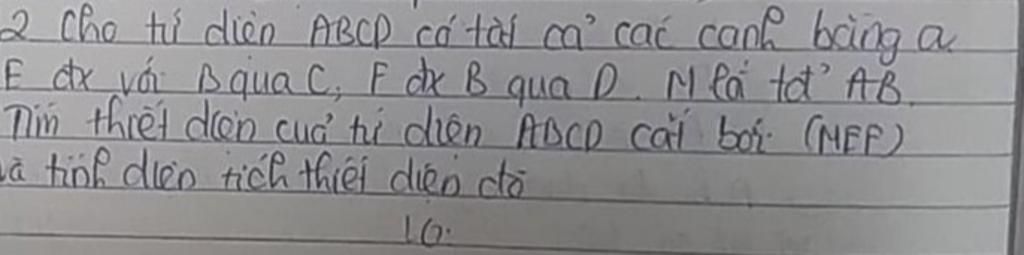 2 Cho tứ diện ABCD có tất cả các cạnh bằng a.
E đx với B qua C, F đx B qua D. M là tđ' AB.
Tìm thiết diện của tứ diện ABCD cắt bởi (MEF)
và tính diện tích thiết diện đó